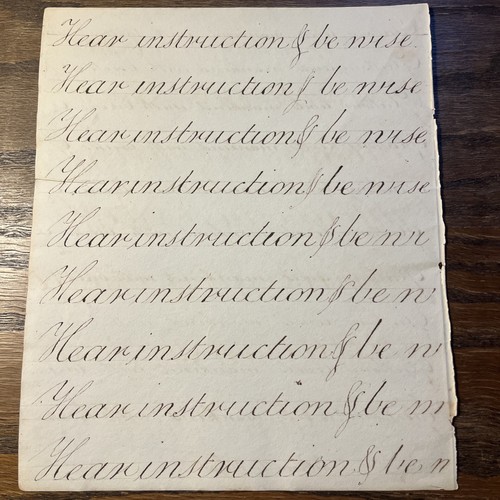 Hear instruction & be wise.
Hear instruction & be wise
Hear instruction & be wise
Hear instruction & be wise
Hear instruction & be wi
Hear instruction & be w
Hear instruction & be w
Hear instruction & be w
Hear instruction & be w